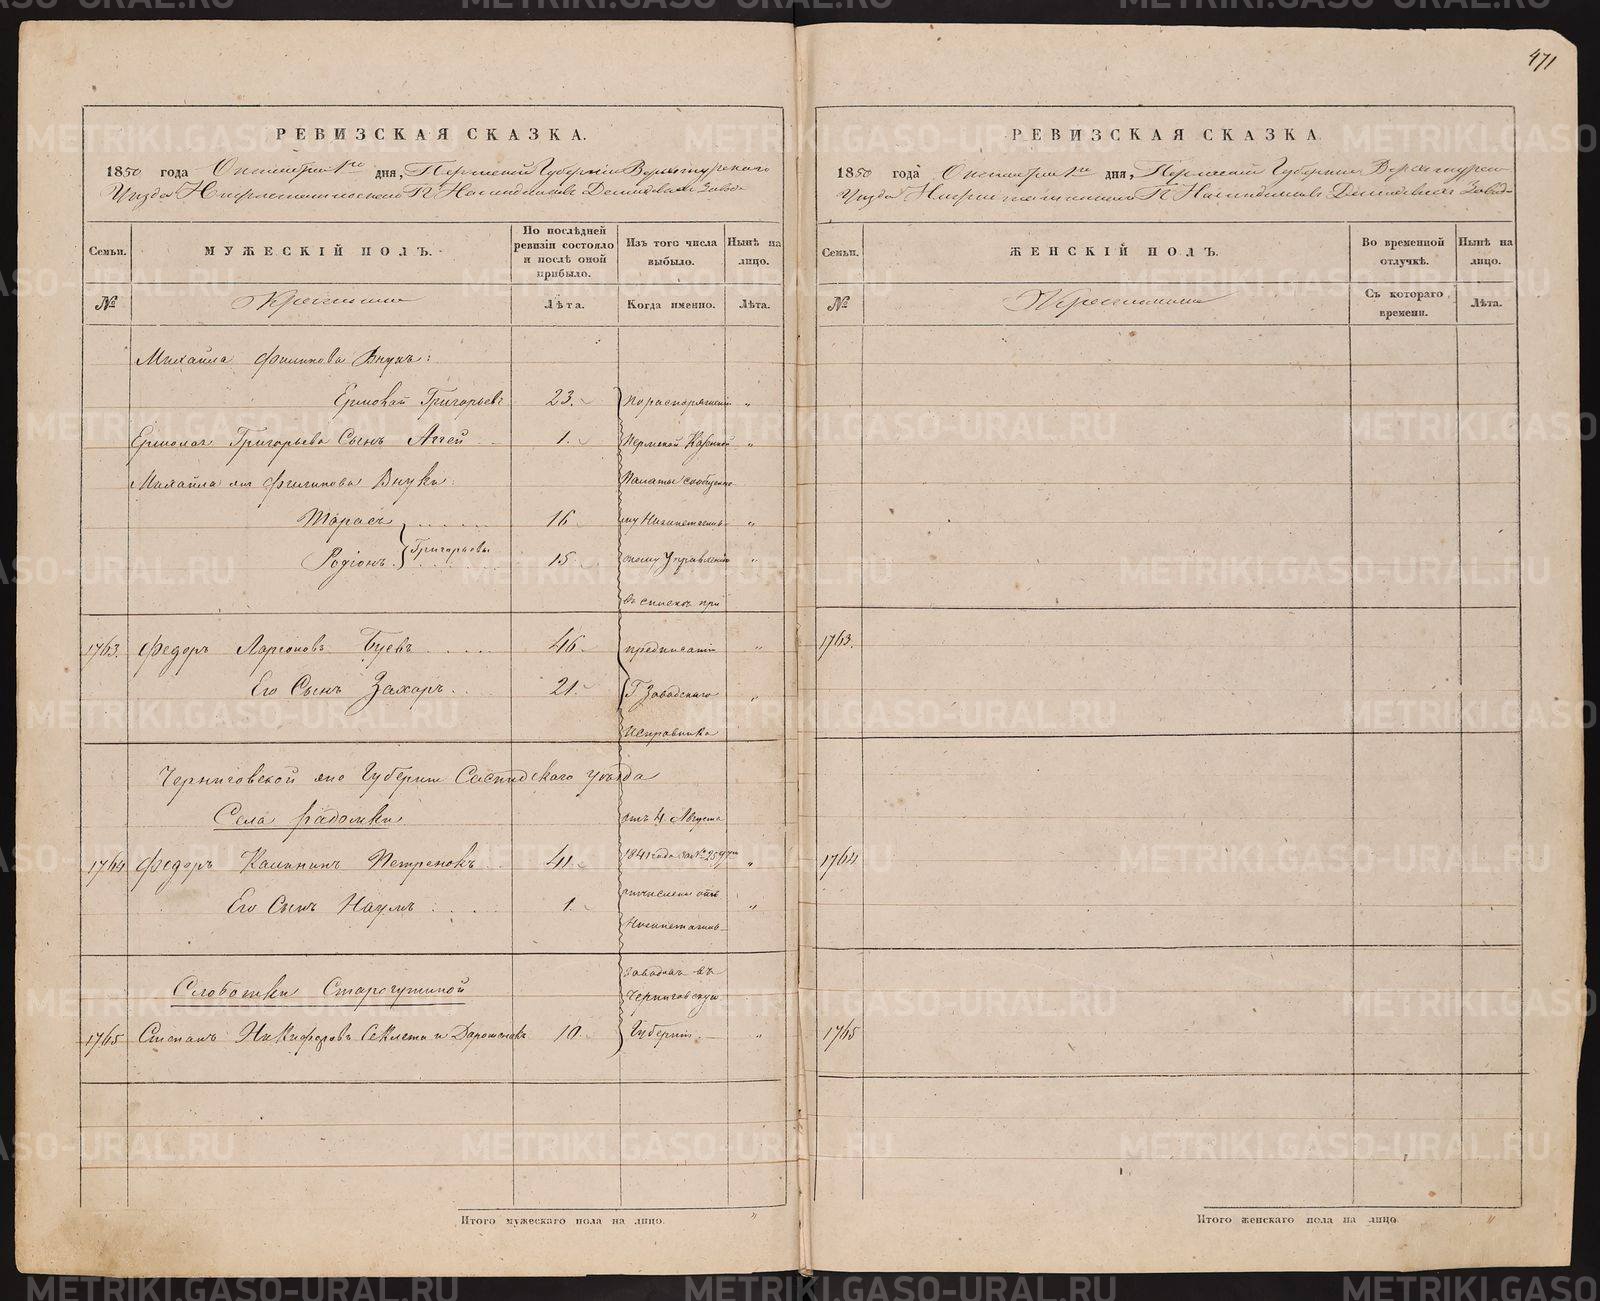 471
РЕВИЗСКАЯ СКАЗКА.
1850 года Октября 1го дня, Пермской Губернии Верхотурского
Уезда Нижнетагильского Г. Наследников Демидовых Заво-
Семьи.
МУЖЕСКІЙ ПОЛЪ.
По послѣдней ревизіи состояло и послѣ оной прибыло.
Изъ того числа выбыло.
Нынѣ на лицо.
№
Крестьяне
Лѣта.
Когда именно.
Лѣта.
Михайла Филипова Внукъ:
Григорьевъ 23. По распоряженію "
Григорьева Сынъ Аггей 1. Пермской Казенной "
Михайла Филипова Внуки: Палаты сообщенно
Тарасъ 16 му Нижнетагиль- "
Родіонъ } Григорьевы 15. скому Управленію "
въ спискѣ при
1763. Федоръ Ларіоновъ Буевъ 46. предписаніи "
Его Сынъ Захаръ. 21. Г. Заводскаго "
Исправника
Черниговской Губерніи уѣзда
Села Радомки отъ 4 Августа
1764 Федоръ Калининъ Петренокъ 41. 1841 года за № "
Его Сынъ Наумъ 1. отчислены отъ "
Нижнетагил-
заводовъ въ
Слободки Черниговскую
1765 Степанъ Никифоровъ 10. Губернію "
Итого мужескаго пола на лицо. "
РЕВИЗСКАЯ СКАЗКА
1850 года Октября 1го дня, Пермской Губернии Верхотурского
Уезда Нижнетагильского Г. Наследников Демидовых Завод-
Семьи.
ЖЕНСКІЙ ПОЛЪ.
Во временной отлучкѣ.
Нынѣ на лицо.
№
Съ котораго времени.
Лѣта.
1763.
1764.
1765
Итого женскаго пола на лицо "
METRIKI.GASO-URAL.RU